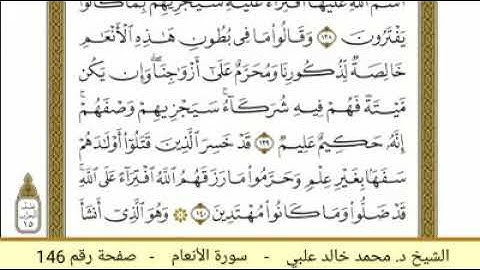 ٱسْمَ ٱللَّهِ عَلَيْهَا ٱفْتِرَآءً عَلَيْهِ سَيَجْزِيهِم بِمَا كَانُوا۟
يَفْتَرُونَ ١٣٨ وَقَالُوا۟ مَا فِى بُطُونِ هَٰذِهِ ٱلْأَنْعَٰمِ
خَالِصَةٌ لِّذُكُورِنَا وَمُحَرَّمٌ عَلَىٰٓ أَزْوَٰجِنَا وَإِن يَكُن
مَّيْتَةً فَهُمْ فِيهِ شُرَكَآءُ سَيَجْزِيهِمْ وَصْفَهُمْ
إِنَّهُۥ حَكِيمٌ عَلِيمٌ ١٣٩ قَدْ خَسِرَ ٱلَّذِينَ قَتَلُوٓا۟ أَوْلَٰدَهُمْ
سَفَهًۢا بِغَيْرِ عِلْمٍ وَحَرَّمُوا۟ مَا رَزَقَهُمُ ٱللَّهُ ٱفْتِرَآءً عَلَى ٱللَّهِ
قَدْ ضَلُّوا۟ وَمَا كَانُوا۟ مُهْتَدِينَ ١٤٠ ۞ وَهُوَ ٱلَّذِىٓ أَنشَأَ
نصف
الحزب
١٥
الشيخ د. محمد خالد علبي - سورة الأنعام - صفحة رقم 146